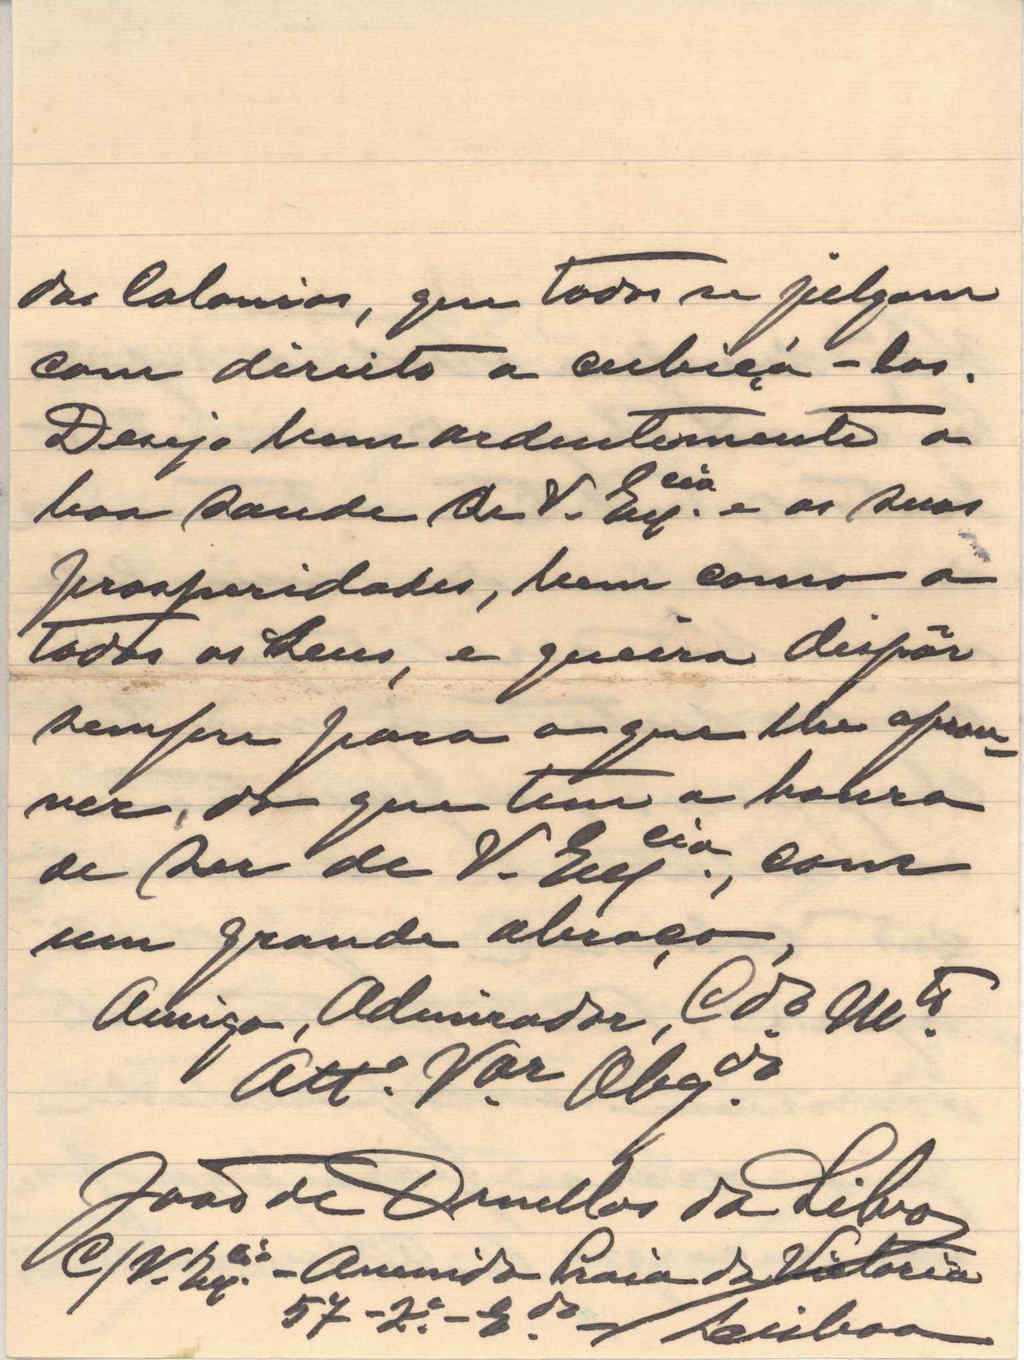 das Colonias, que todos se julgam
com direito a cubiçá-las.
Desejo bem ardentemente a
boa saude de V. Exª.cia e as suas
prosperidades, bem como a
todos os seus, e queira dispôr
sempre para o que lhe aprou-
ver, do que tem a honra
de ser de V. Ex.cia, com
um grande abraço,
Amigo, Admirador, C.do M.to
Att.º V.or Obg.do
João de Ornellas da Silva
C/V. Ex.cia - Avenida Praia da Victoria
57 - 2.º - E.do - Lisboa